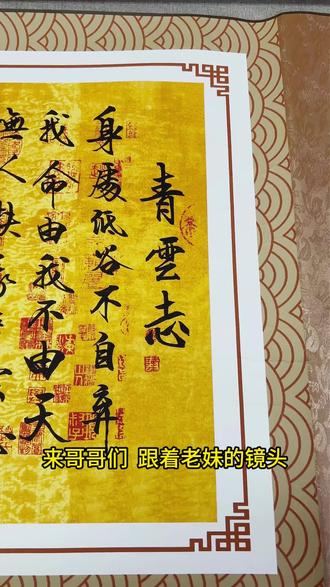 青雲志
身處低谷不自弃
我命由我不由天
無人扶我
来哥哥们 跟着老妹的镜头